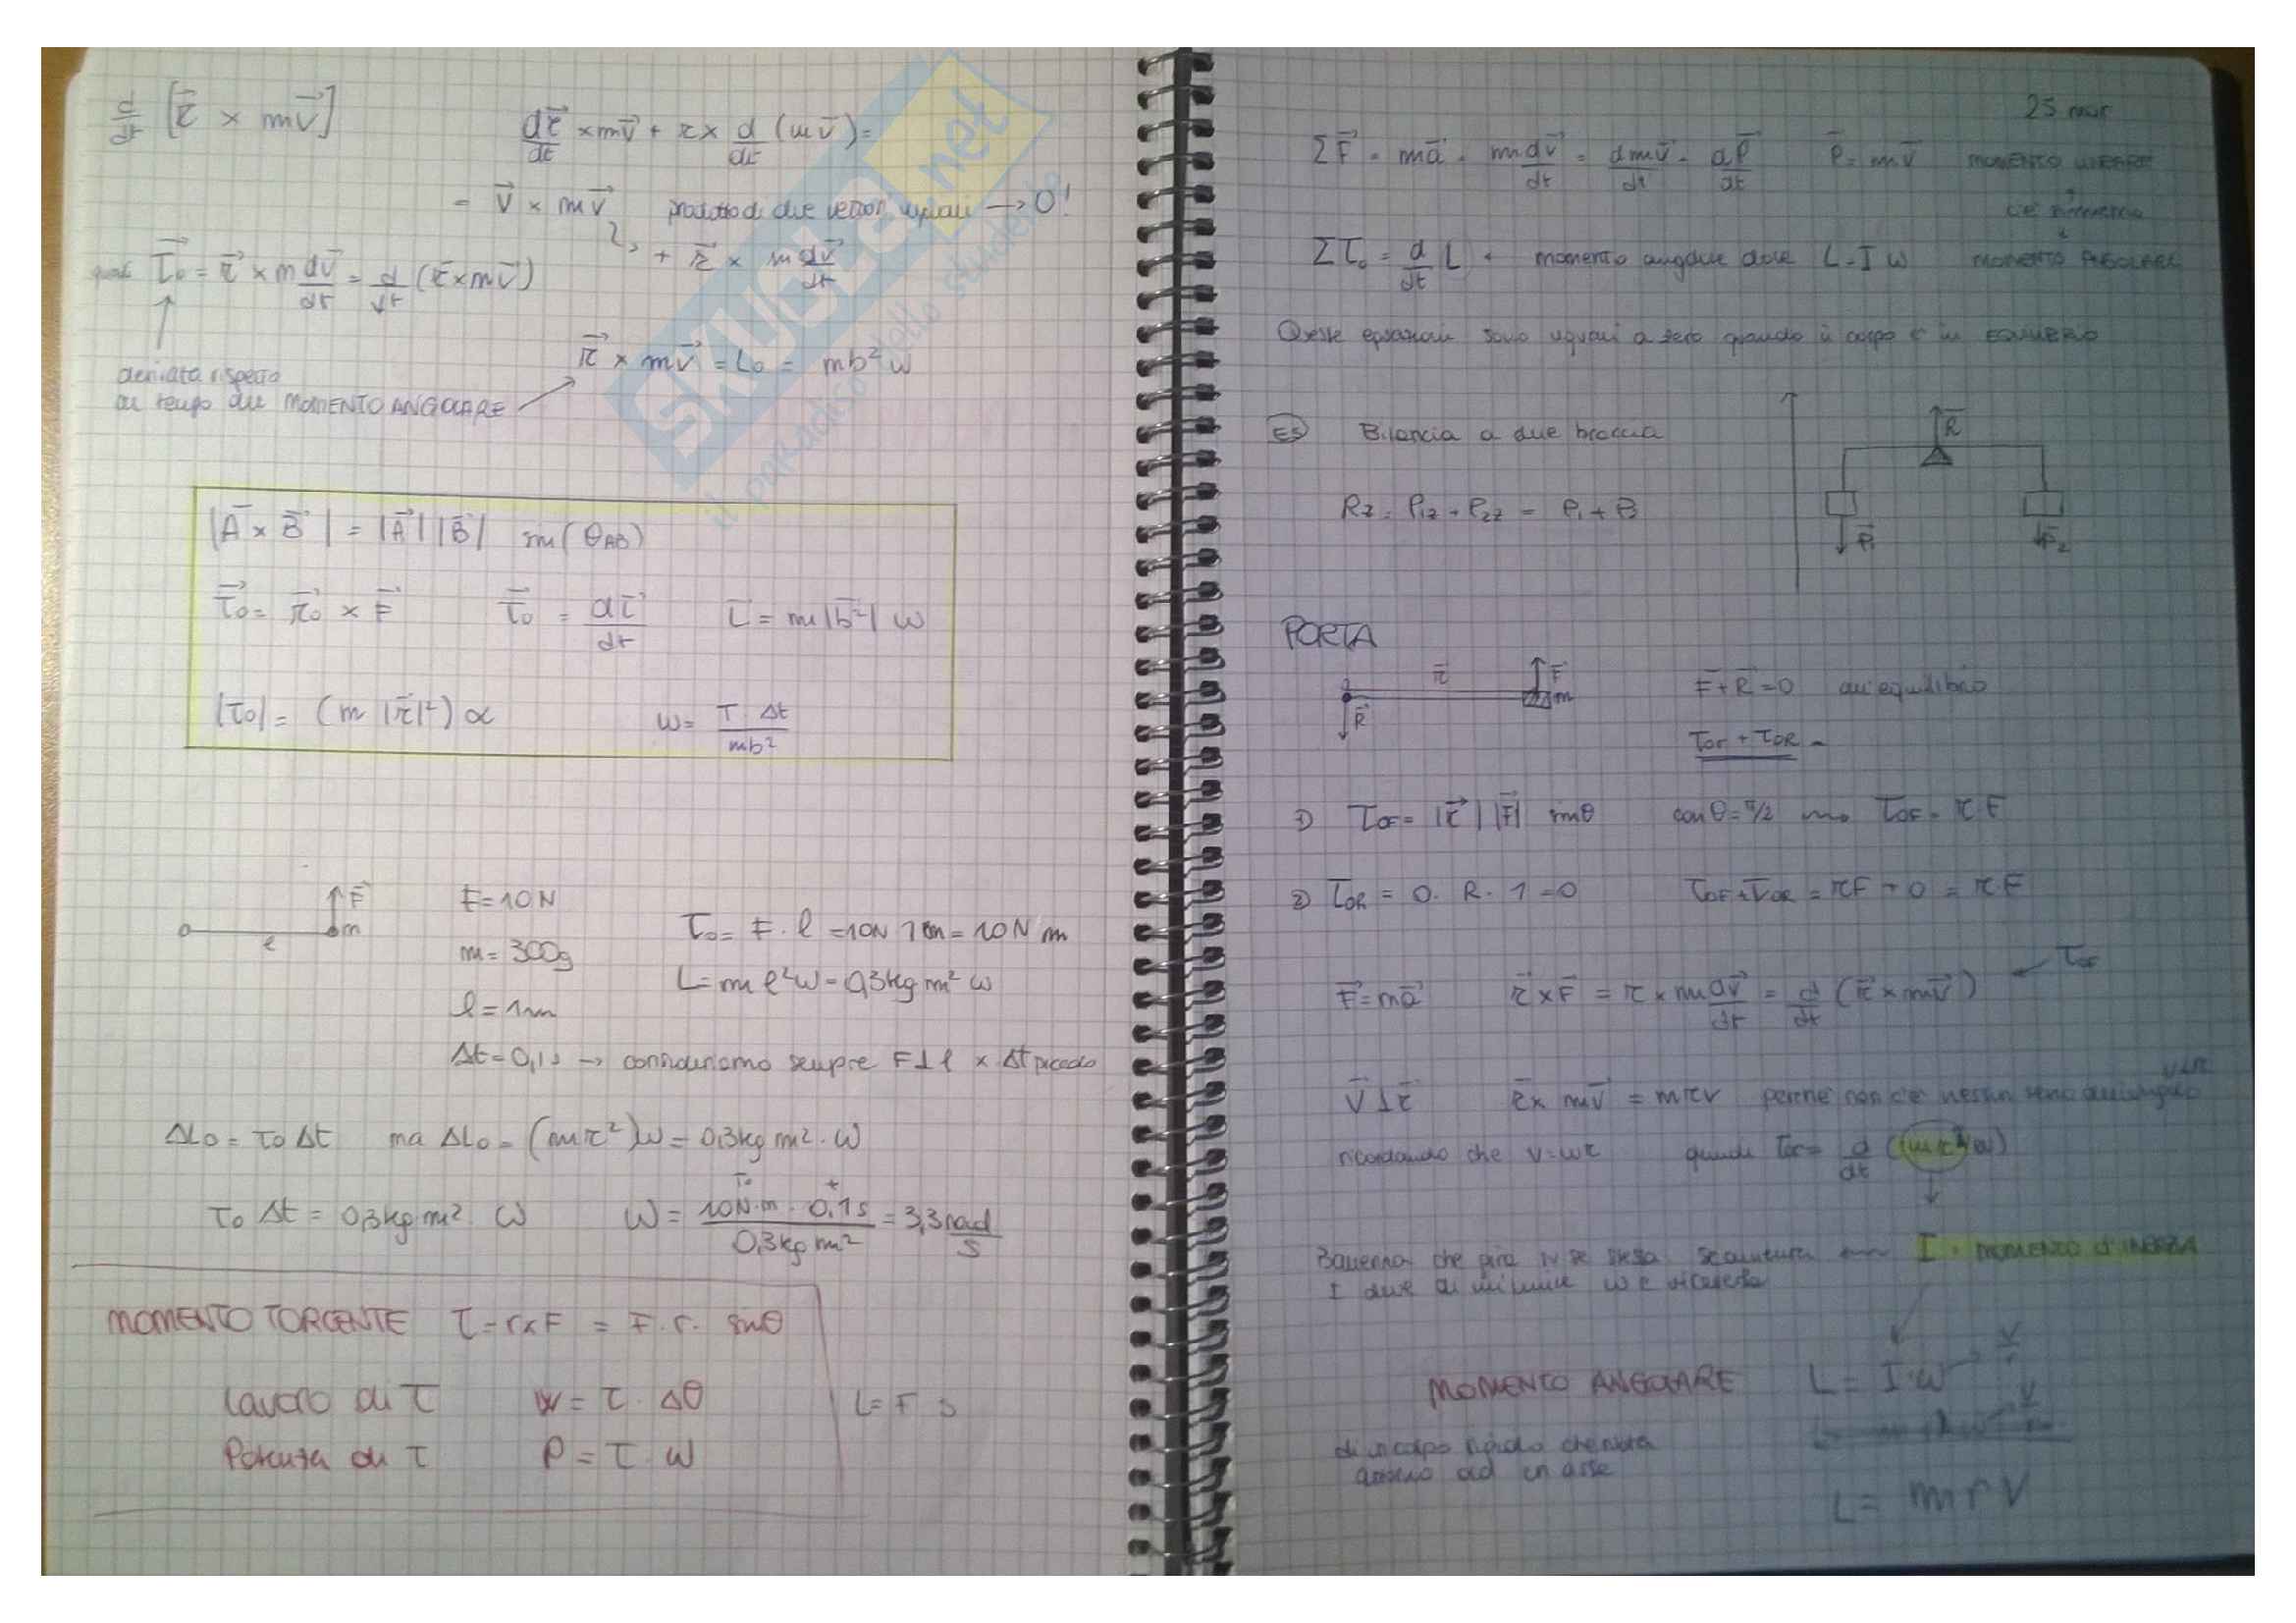 d/dt [r⃗ × mv⃗]
dr⃗/dt × mv⃗ + r × d/dt (mv⃗) =
= v⃗ × mv⃗ prodotto di due vettori uguali → 0!
+ r⃗ × m dv⃗/dt
quindi τ⃗o = r⃗ × m dv⃗/dt = d/dt (r⃗ × mv⃗)
r⃗ × mv⃗ = Lo = mb²ω
derivata rispetto
al tempo del MOMENTO ANGOLARE
|A⃗ × B⃗| = |A⃗| |B⃗| sin(θAB)
τ⃗o = r⃗o × F⃗ τ⃗o = dτ⃗/dt L⃗ = m|b⃗²| ω
|τo| = (m |r⃗|²) α ω = τ Δt / mb²
F⃗
o l m
F = 10 N
m = 300g
l = 1m
τo = F · l = 10N 1m = 10 N m
L = m l²ω = 0,3 kg m² ω
Δt = 0,1 s → consideriamo sempre F⊥l × Δt piccolo
ΔLo = τo Δt ma ΔLo = (mr²)ω = 0,3 kg m² · ω
τo Δt = 0,3 kg m² ω ω = 10N·m · 0,1s / 0,3 kg m² = 3,3 rad/s
τo t
MOMENTO TORCENTE τ = r×F = F · r · sinθ
Lavoro di τ W = τ · Δθ L = F s
Potenza di τ P = τ · ω
skuola.net
il paradiso dello studente
25 mar
ΣF⃗ = ma⃗ = m dv⃗/dt = dmv⃗/dt = dP⃗/dt P⃗ = mv⃗ MOMENTO LINEARE
c'è differenza
Στo = d/dt L momento angolare dove L = I ω MOMENTO ANGOLARE
Queste equazioni sono uguali a zero quando il corpo è in EQUILIBRIO
ES Bilancia a due braccia
Rz = P1z + P2z = P1 + P2
R⃗
P⃗1 P⃗2
PORTA
o r⃗ F⃗ m
R⃗
F⃗ + R⃗ = 0 all'equilibrio
τOF + τOR =
1) τOF = |r⃗| |F⃗| sinθ con θ = π/2 τOF = r F
2) τOR = 0 · R · 1 = 0 τOF + τOR = rF + 0 = r F
F⃗ = ma⃗ r⃗ × F⃗ = r × m dv⃗/dt = d/dt (r⃗ × mv⃗) τOF
v⃗ ⊥ r⃗ r⃗ × mv⃗ = mrv perché non c'è nessun seno dell'angolo
v⊥r
ricordando che v = ωr quindi τOF = d/dt (mr²ω)
Ballerina che gira su se stessa I · MOMENTO D'INERZIA
MOMENTO ANGOLARE L = I·ω v/r
di un corpo rigido che ruota
attorno ad un asse
L = m r v